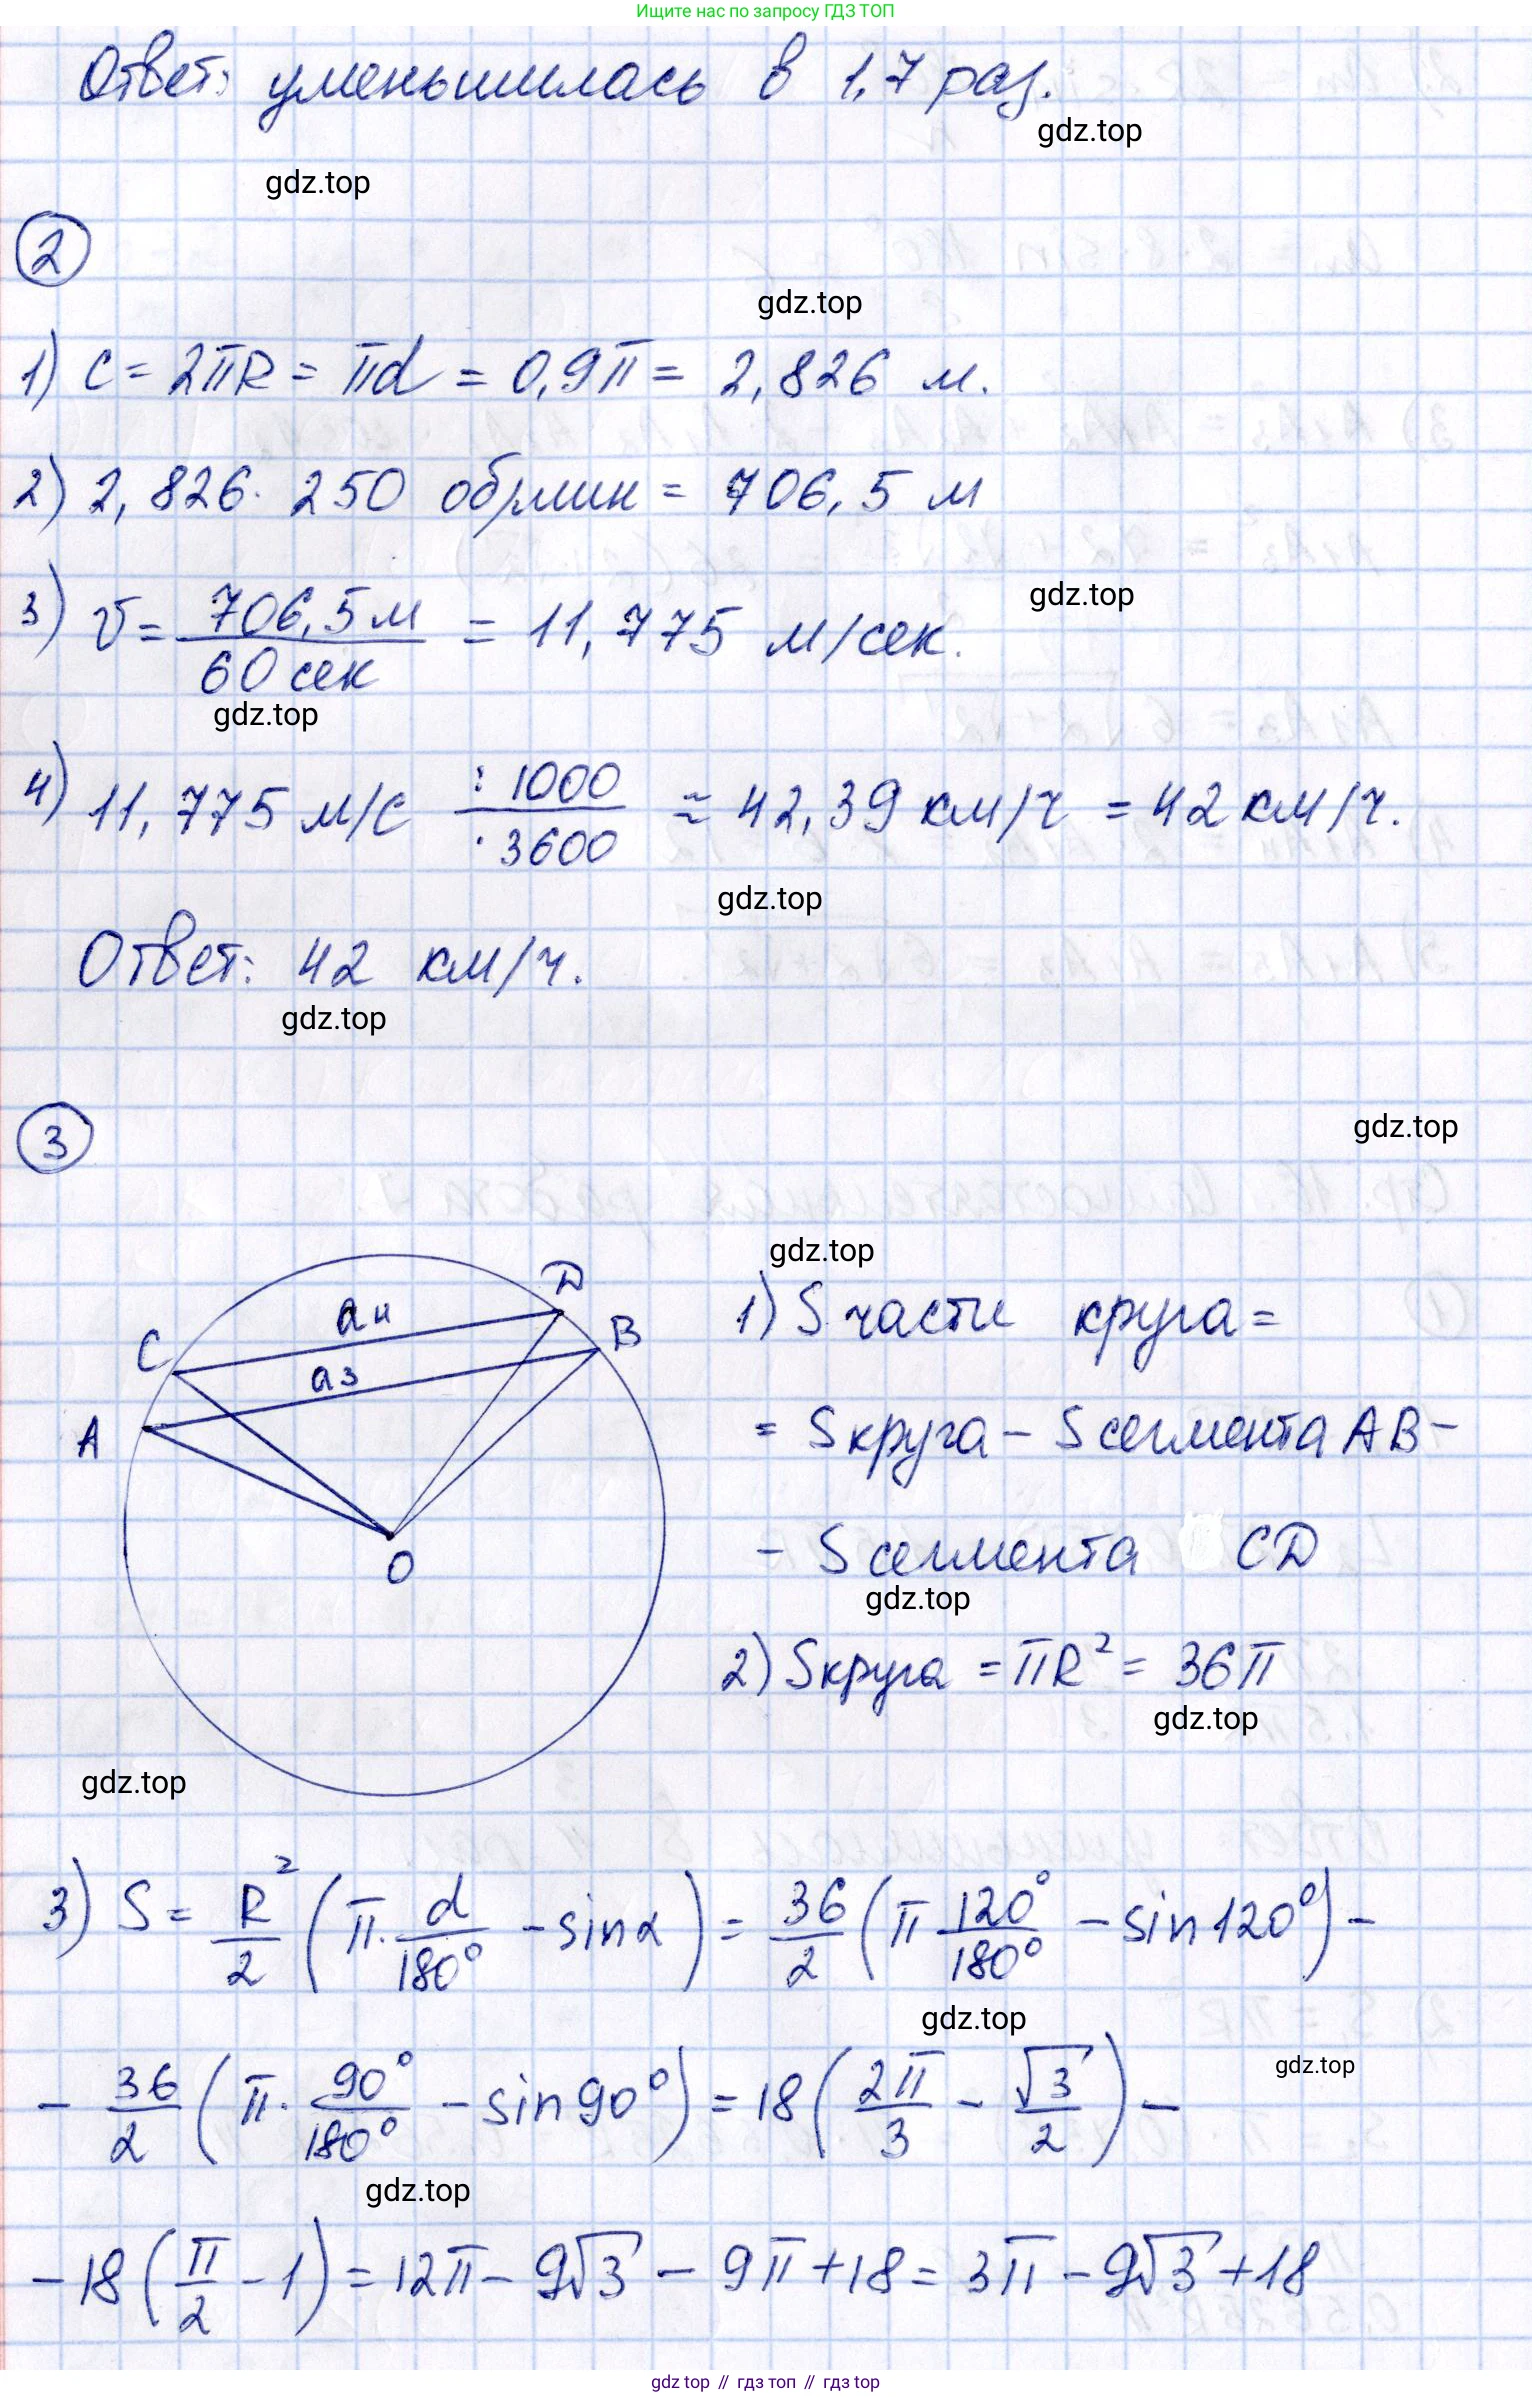 Ищите нас по запросу ГДЗ ТОП
Ответ: уменьшилась в 1,7 раз.
gdz.top
gdz.top
2
gdz.top
1) C = 2πR = πd = 0,9π = 2,826 м.
2) 2,826 · 250 об/мин = 706,5 м
3) v = 706,5 м / 60 сек = 11,775 м/сек.
gdz.top
gdz.top
4) 11,775 м/с : 1000 / · 3600 ≈ 42,39 км/ч = 42 км/ч.
gdz.top
Ответ: 42 км/ч.
gdz.top
3
gdz.top
gdz.top
C a4 D
A a3 B
O
1) S части круга =
= S круга – S сегмента AB –
– S сегмента CD
gdz.top
2) S круга = πR² = 36π
gdz.top
gdz.top
3) S = R²/2 (π · α/180° – sin α) = 36/2 (π 120°/180° – sin 120°) –
gdz.top
– 36/2 (π · 90°/180° – sin 90°) = 18 (2π/3 – √3/2) –
gdz.top
gdz.top
– 18 (π/2 – 1) = 12π – 9√3 – 9π + 18 = 3π – 9√3 + 18
gdz top // гдз топ // гдз top